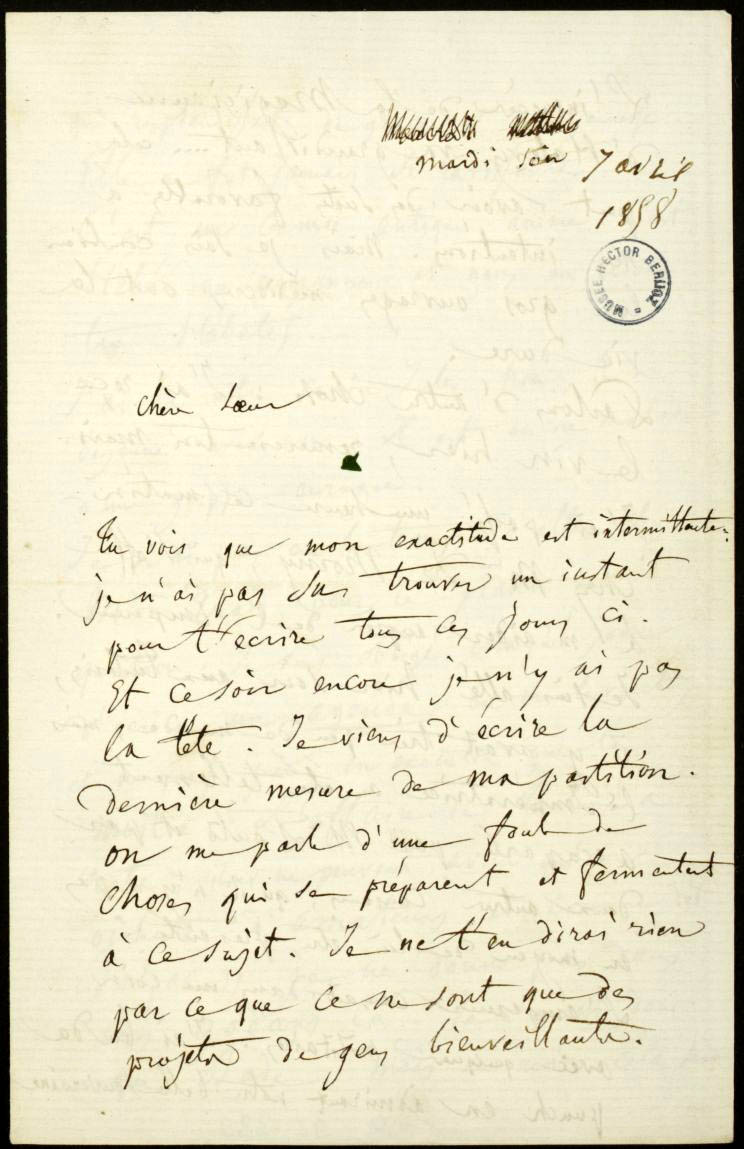 mardi soir 7 avril
1858
MUSÉE HECTOR BERLIOZ
chère sœur
Tu vois que mon exactitude est intermittente;
je n'ai pas su trouver un instant
pour t'écrire tous ces jours ci.
Et ce soir encore je n'y ai pas
la tête. Je viens d'écrire la
dernière mesure de ma partition.
on me parle d'une foule de
choses qui se préparent et fermentent
à ce sujet. Je ne t'en dirai rien
par ce que ce ne sont que des
projets de gens bienveillants.